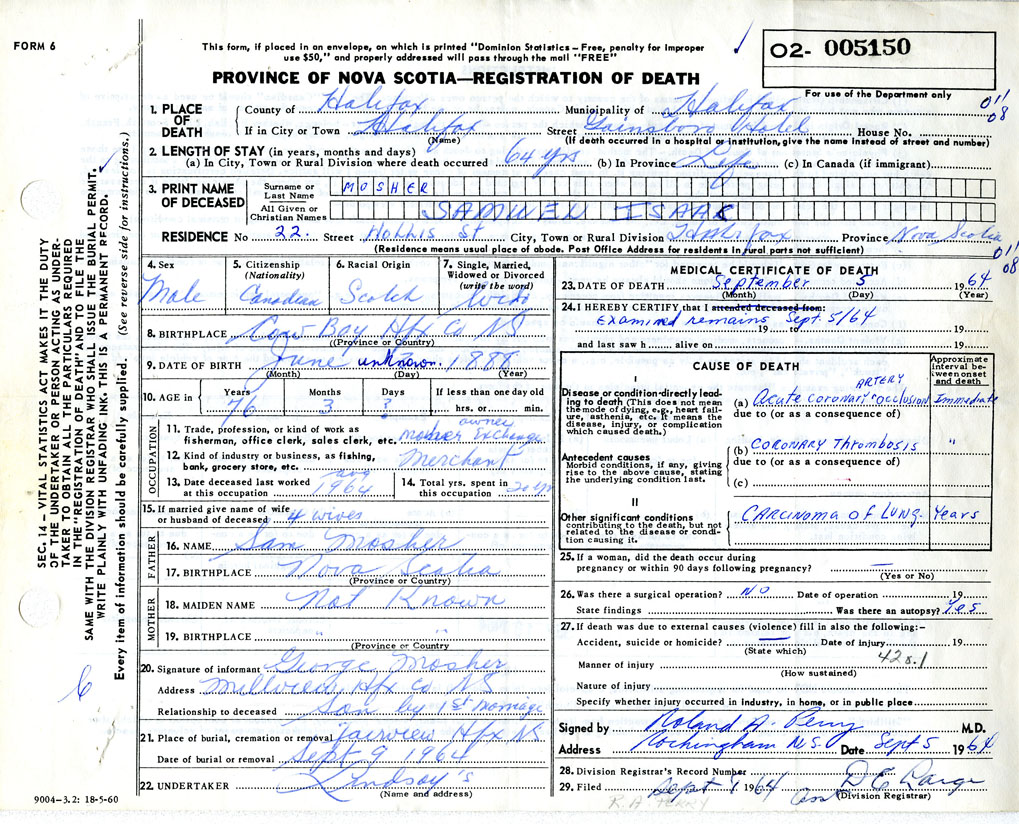 FORM 6
This form, if placed in an envelope, on which is printed "Dominion Statistics – Free, penalty for improper
use $50," and properly addressed will pass through the mail "FREE"
PROVINCE OF NOVA SCOTIA—REGISTRATION OF DEATH
O2- 005150
For use of the Department only
011
08
1. PLACE OF DEATH County of Halifax Municipality of Halifax
If in City or Town Halifax Street Gainsboro Hotel House No.
(Name) (If death occurred in a hospital or institution, give the name instead of street and number)
2. LENGTH OF STAY (in years, months and days)
(a) In City, Town or Rural Division where death occurred 64 yrs (b) In Province Life (c) In Canada (if immigrant)
3. PRINT NAME OF DECEASED Surname or Last Name MOSHER
All Given or Christian Names SAMUEL ISAAC
RESIDENCE No 22. Street Hollis St City, Town or Rural Division Halifax Province Nova Scotia
(Residence means usual place of abode. Post Office Address for residents in rural parts not sufficient)
011
08
4. Sex Male
5. Citizenship (Nationality) Canadian
6. Racial Origin Scotch
7. Single, Married, Widowed or Divorced (write the word) Wido
8. BIRTHPLACE Cow Bay, Hfx Co NS
(Province or Country)
9. DATE OF BIRTH June unknown 1888
(Month) (Day) (Year)
10. AGE in Years 76 Months 3 Days ? If less than one day old hrs. or min.
OCCUPATION
11. Trade, profession, or kind of work as fisherman, office clerk, sales clerk, etc. owner Mosher Exchange
12. Kind of industry or business, as fishing, bank, grocery store, etc. Merchant
13. Date deceased last worked at this occupation Aug 1964
14. Total yrs. spent in this occupation 20 yrs
15. If married give name of wife or husband of deceased 4 wives
FATHER
16. NAME Sam Mosher
17. BIRTHPLACE Nova Scotia
(Province or Country)
MOTHER
18. MAIDEN NAME Not Known
19. BIRTHPLACE " "
(Province or Country)
20. Signature of informant George Mosher
Address Millview, Hfx Co NS
Relationship to deceased Son by 1st Marriage
21. Place of burial, cremation or removal Fairview Hfx NS
Date of burial or removal Sept 9 1964
22. UNDERTAKER Lindsay's
(Name and address)
9004-3.2: 18-5-60
MEDICAL CERTIFICATE OF DEATH
23. DATE OF DEATH September 5 1964
(Month) (Day) (Year)
24. I HEREBY CERTIFY that I attended deceased from:
Examined remains Sept. 5/64
19 to 19
and last saw h alive on 19
CAUSE OF DEATH
Approximate interval between onset and death
I
Disease or condition directly leading to death (This does not mean the mode of dying, e.g., heart failure, asthenia, etc. It means the disease, injury, or complication which caused death.)
ARTERY
(a) Acute coronary occlusion Immediate
due to (or as a consequence of)
(b) CORONARY Thrombosis "
due to (or as a consequence of)
(c)
Antecedent causes
Morbid conditions, if any, giving rise to the above cause, stating the underlying condition last.
II
Other significant conditions contributing to the death, but not related to the disease or condition causing it.
CARCINOMA of LUNG. Years
25. If a woman, did the death occur during pregnancy or within 90 days following pregnancy? —
(Yes or No)
26. Was there a surgical operation? NO Date of operation 19
State findings Was there an autopsy? Yes
27. If death was due to external causes (violence) fill in also the following:–
Accident, suicide or homicide? — Date of injury 19
(State which)
420.1
Manner of injury
(How sustained)
Nature of injury
Specify whether injury occurred in industry, in home, or in public place
Signed by Roland A. Perry M.D.
Address Rockingham N.S. Date Sept 5 1964
28. Division Registrar's Record Number
29. Filed Sept 1964
(Division Registrar)
R.A. PERRY
SEC. 14 – VITAL STATISTICS ACT MAKES IT THE DUTY
OF THE UNDERTAKER OR PERSON ACTING AS UNDER-
TAKER TO OBTAIN ALL THE PARTICULARS REQUIRED
IN THE "REGISTRATION OF DEATH" AND TO FILE THE
SAME WITH THE DIVISION REGISTRAR WHO SHALL ISSUE THE BURIAL PERMIT.
WRITE PLAINLY WITH UNFADING INK. THIS IS A PERMANENT RECORD.
Every item of information should be carefully supplied. (See reverse side for instructions.)
6